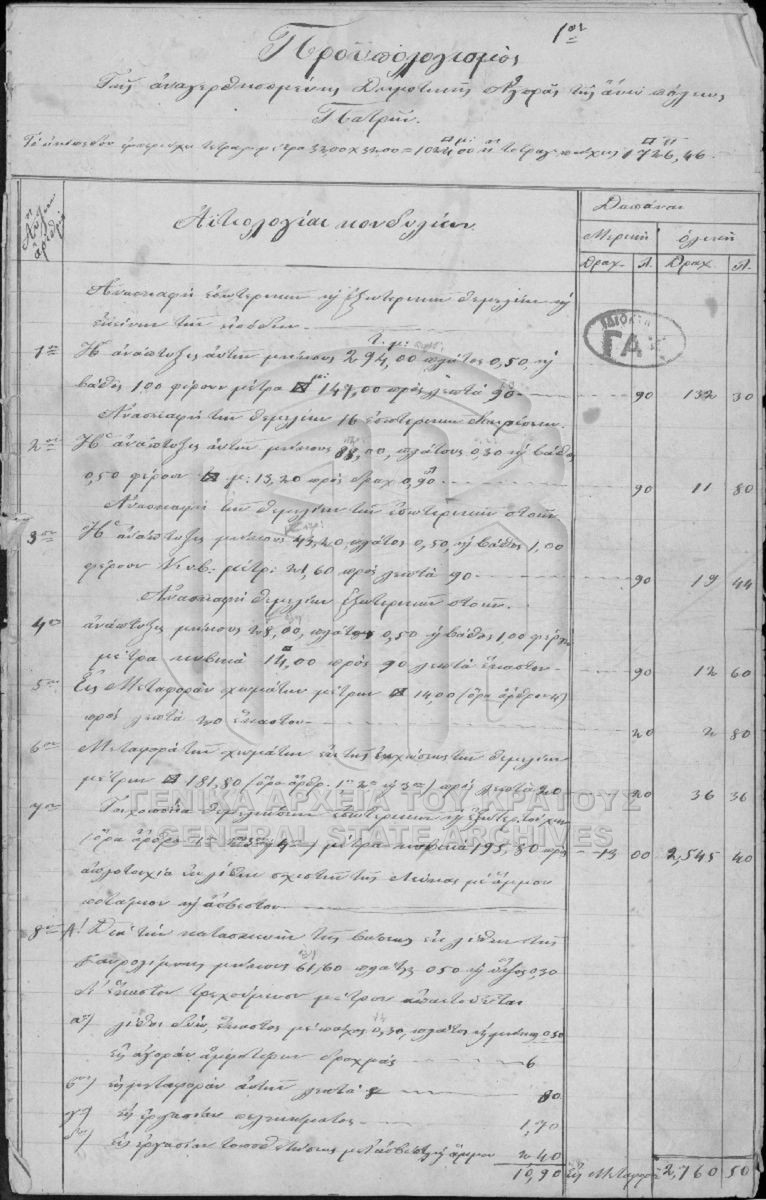 1ον
Προϋπολογισμός
Τῆς ἀνεγερθησομένης Δημοτικῆς Ἀγορᾶς τῆς ἄνω πόλεως
Πατρῶν.
Τὸ οἰκόπεδον τετραγ. μέτρα 32.00 × 32.00 = 1024,00 ἢ τετραγ. πήχεις 1726,46
Αὔξων ἀριθμός
Αἰτιολογίαι κονδυλίων
Δαπάναι
Μερικὴ ὁλικὴ
Δραχ. Λ. Δραχ. Λ.
Ἀνασκαφὴ ἐσωτερικῶν καὶ ἐξωτερικῶν θεμελίων καὶ
ἐκείνων τῶν εἰσόδων
1ον Ἡ ἀνάπτυξις αὐτῶν μήκους 294,00 πλάτος 0,50 καὶ
βάθος 1.00 φέρουν μέτρα 147,00 πρὸς λεπτὰ 90 90 132 30
Ἀνασκαφὴ τῶν θεμελίων 16 ἐσωτερικῶν διαιρέσεων.
2ον Ἡ ἀνάπτυξις αὐτῶν μήκους 88,00, πλάτους 0,30 καὶ βάθος
0,50 φέρουν μ: 13,20 πρὸς δραχ 0,90 90 11 80
Ἀνασκαφὴ τῶν θεμελίων τῶν ἐσωτερικῶν στοῶν
3ον Ἡ ἀνάπτυξις μήκους 43,20, πλάτος 0,50, καὶ βάθος 1,00
φέρουν κυβ: μέτρ: 21,60 πρὸς λεπτὰ 90 90 19 44
Ἀνασκαφὴ θεμελίων ἐξωτερικῶν στοῶν
4ον ἀνάπτυξις μήκους 28,00, πλάτους 0,50 καὶ βάθος 1,00 φέρει
μέτρα κυβικὰ 14,00 πρὸς 90 λεπτὰ ἕκαστον 90 12 60
5ον Εἰς Μεταφορὰν χωμάτων μέτρων 14,00 (ὅρα ἄρθρον 4)
πρὸς λεπτὰ 20 ἕκαστον 20 2 80
6ον Μεταφορὰ τῶν χωμάτων ἐκ τῆς θεμελίων
μέτρων 181,80 (ὅρα ἄρθρ. 1ον 2ον καὶ 3ον) πρὸς λεπτὰ 20 20 36 36
7ον Τοιχοποιΐα θεμελίων ἐσωτερικῶν καὶ ἐξωτερ. τοίχων
(ὅρα ἄρθρα 1ον 4ον) μέτρα κυβικὰ 195,80 πρὸς 13 00 2,545 40
ἁπλοτοιχία ἐκ λίθων σχιστῶν τῆς μὲ ἄμμον
ποτάμιον καὶ ἄσβεστον
8ον Α! Διὰ τὴν κατασκευὴν τῆς βάσεως ἐκ λίθων τῆς
μήκους 61,60 πλάτος 050 καὶ ὕψος 0,30
Δι' ἕκαστον τρεχούμενον μέτρον ἀπαιτοῦνται
α') λίθοι δύω, ἕκαστος μὲ πάχος 0,30, πλάτος καὶ μῆκος 0.50
εἰς ἀγορὰν ἀμφοτέρων δραχμὰς 6
β') εἰς μεταφορὰν αὐτῶν λεπτὰ 80
γ') εἰς ἐργασίαν πελεκήματος 1,70
δ') εἰς ἐργασίαν τοποθετήσεως μετ' ἀσβέστου καὶ ἄμμου 2 40
10,90 Εἰς Μεταφορὰν 2,760 50
ΓΑΚ
ΓΕΝΙΚΑ ΑΡΧΕΙΑ ΤΟΥ ΚΡΑΤΟΥΣ
GENERAL STATE ARCHIVES